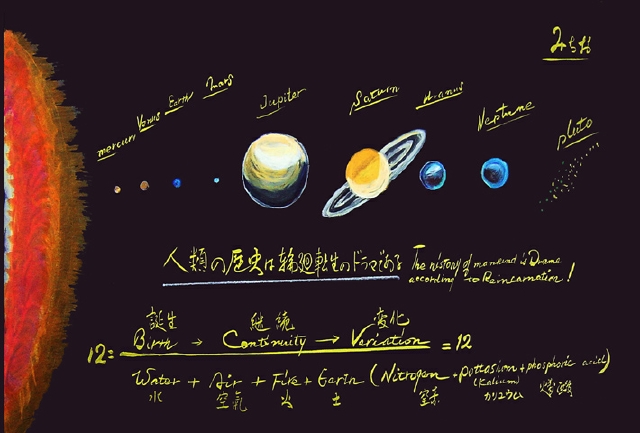 みちお
mercury Venus Earth mars Jupiter Saturn Uranus Neptune pluto
人類の歴史は輪廻転生のドラマである The history of mankind is Drama
according to Reincarnation!
誕生 継続 変化
12= Birth → Continuity → Variation = 12
Water + Air + Fire + Earth (Nitrogen + pottasium + phosphoric acid)
(Kalium)
水 空氣 火 土 窒素 カリユウム 燐酸